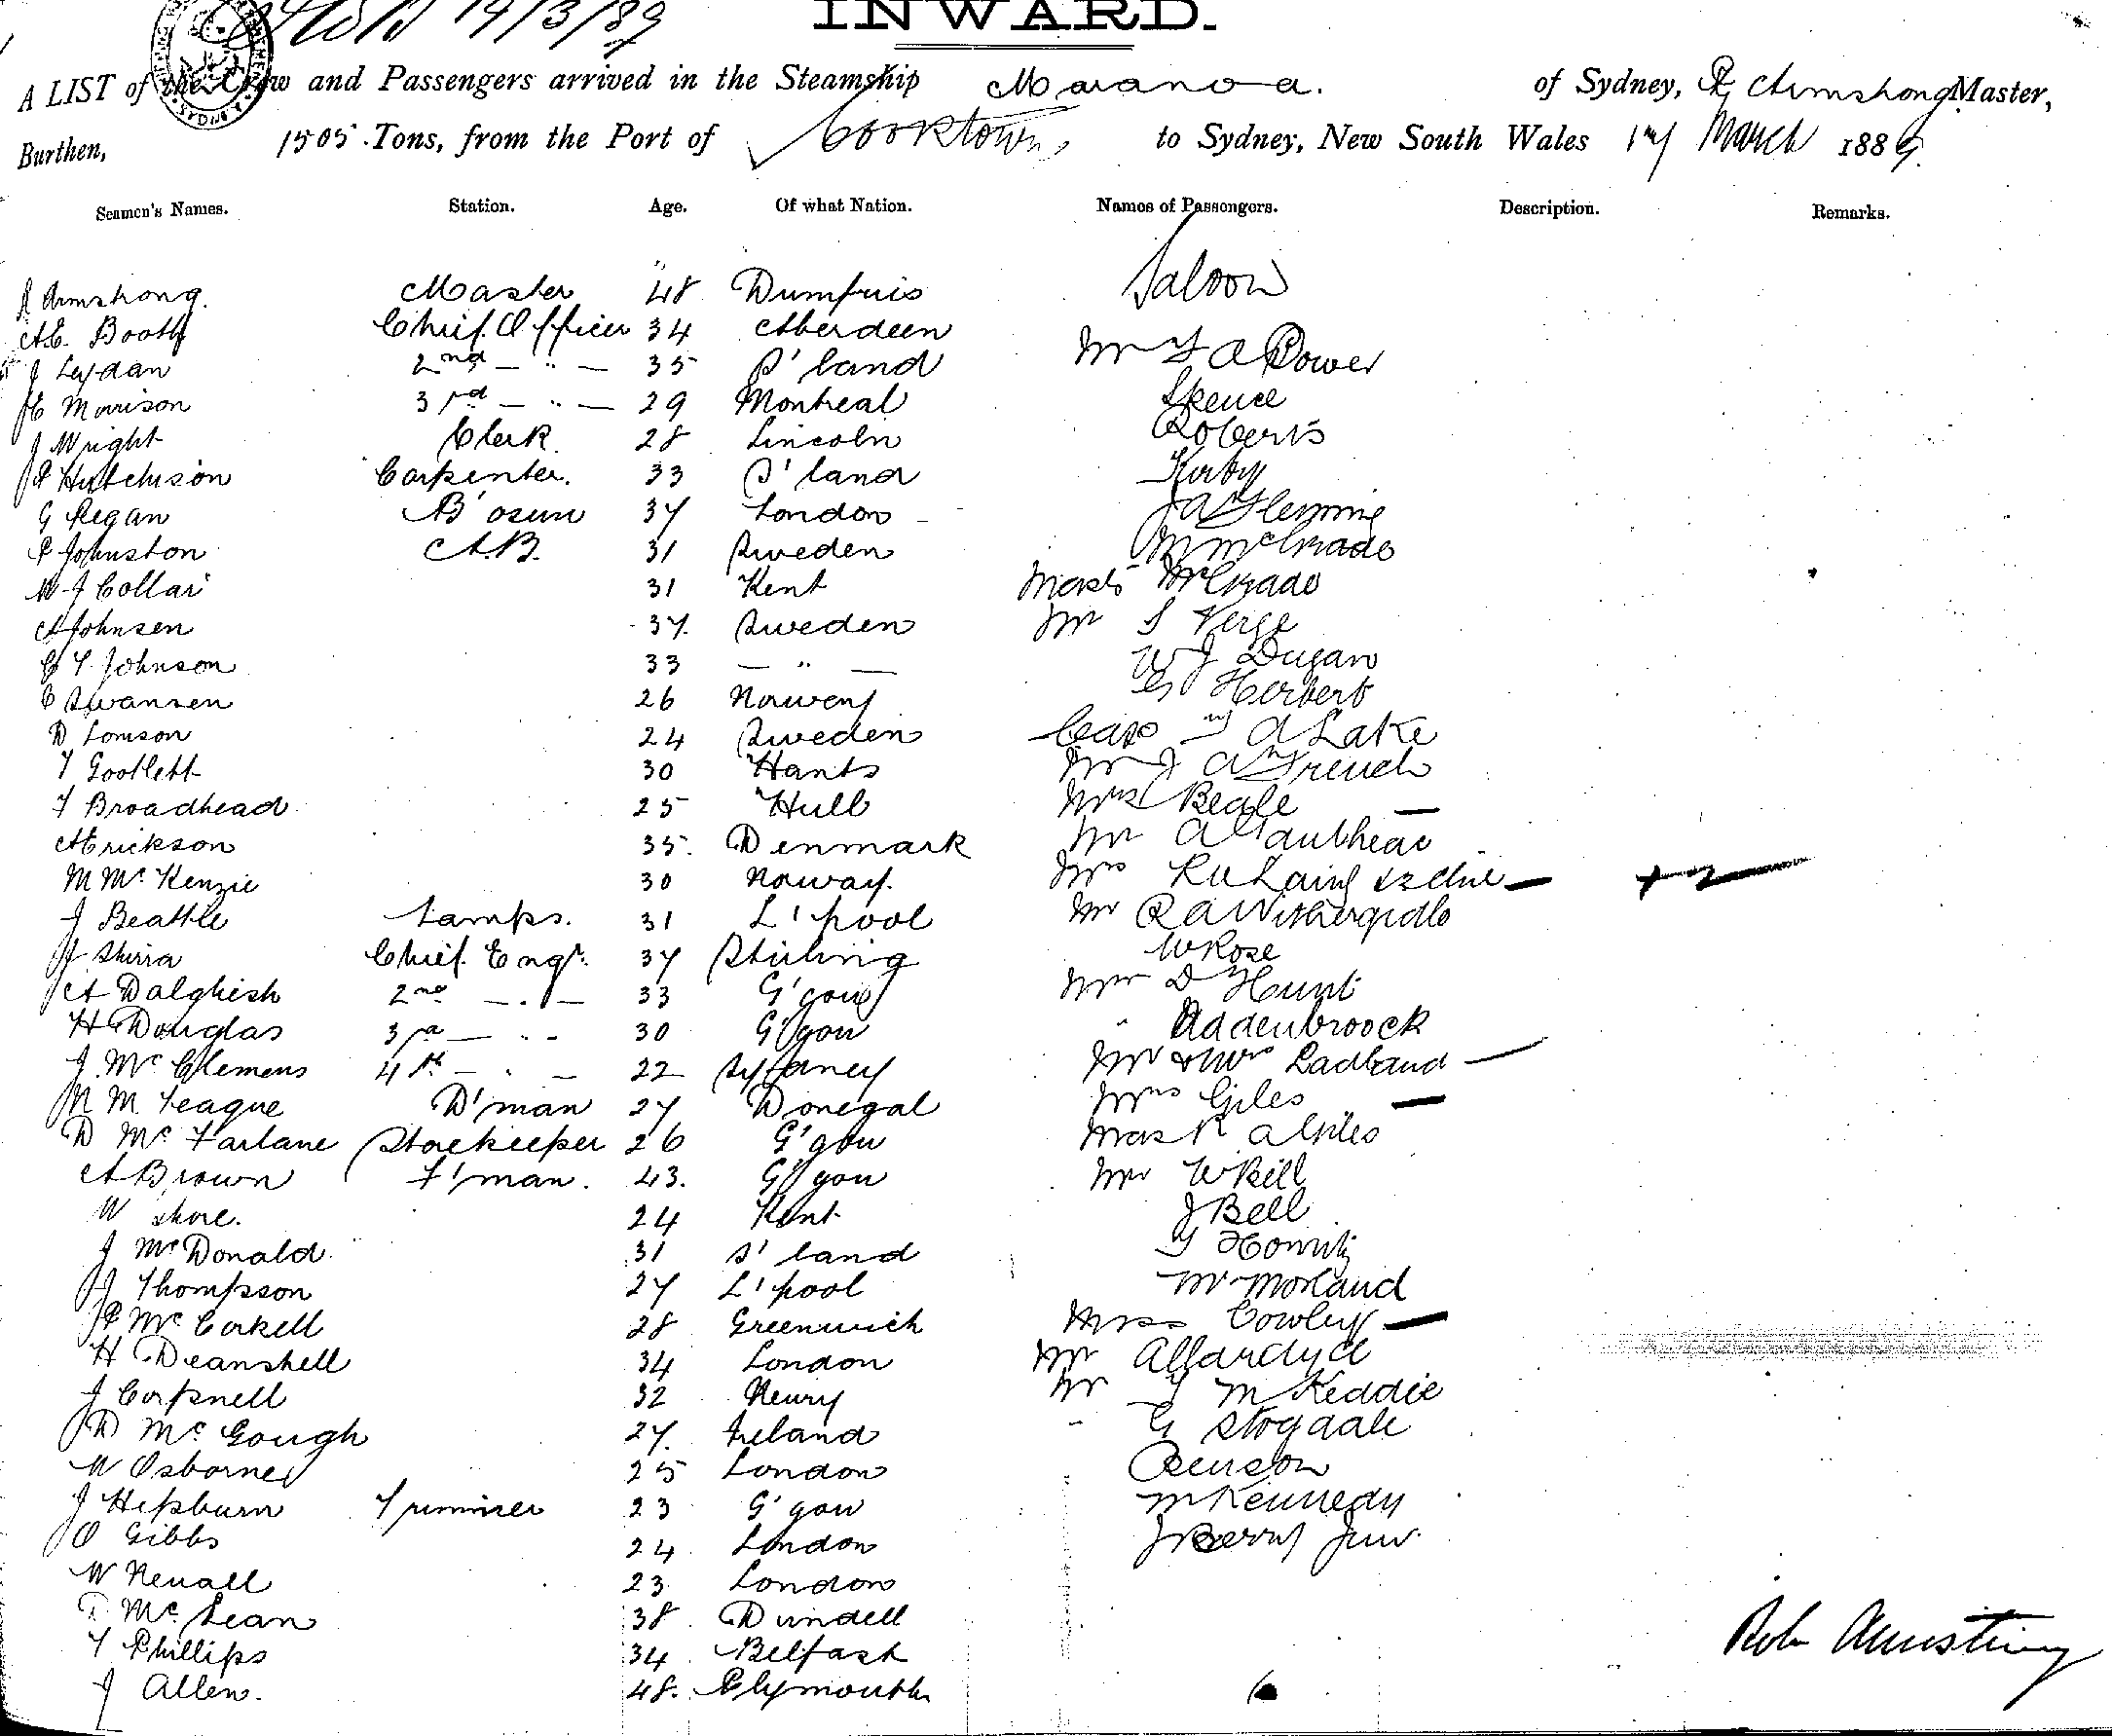 19/3/89
INWARD.
A LIST of the Crew and Passengers arrived in the Steamship Maranoa. of Sydney, R Armstrong Master,
Burthen, 1505 Tons, from the Port of Cooktown, to Sydney, New South Wales March 1889.
Seamen's Names. Station. Age. Of what Nation. Names of Passengers. Description. Remarks.
Saloon
R Armstrong. Master 48 Dumfries
A.E. Booth Chief Officer 34 Aberdeen Mr F A Power
J Leydan 2nd — " — 35 S'land
E Morrison 3rd — " — 29 Montreal Spence
J Wright Clerk 28 Lincoln Roberts
P Hutchison Carpenter. 33 S'land Kirby
G Regan B'osun 37 London J A Fleming
P Johnston A.B. 31 Sweden
W J Collar 31 Kent
A Johnsen 37. Sweden Mr S Verge
C F Johnson 33 — " — W J Dugan
C Swansen 26 Norway G Herbert
D Lomson 24 Sweden A Lake
T Gootlett 30 Hants French
F Broadhead 25 Hull Mrs Beale —
A Erickson 35. Denmark Mr A
M McKenzie 30 Norway. Mrs Laing
J Beattie Lamps. 31 L'pool Mr R A
J Shirra Chief Engr. 37 Stirling W Rose
A Dalgliesh 2nd — . — 33 G'gow D Hunt
H Douglas 3rd — . . - 30 G'gow " Addenbroock
J McClemens 4th — . — 22 Sydney Mr & Mrs Ladband —
M Teague D'man 27 Donegal Mrs Giles —
D McFarlane Storekeeper 26 G'gow A Giles
A Brown F'man. 43. G'gow Mr W Bell
W Shore. 24 Kent J Bell
J McDonald 31 S'land
J Thompson 27 L'pool Morland
P McCorkell 28 Greenwich Miss Cowley —
H Deanshell 34 London Mr Allardyce
J Corpnell 32 Newry Mr McKeddie
D McGough 27. Ireland " G Stogdale
W Osborne 25 London Benson
J Hepburn Trimmer 23 G'gow M Kennedy
O Gibbs 24 London J Berry Jun.
W Newall 23 London
D McLean 38 Dundell
T Phillips 34 Belfast
J Allen. 48. Plymouth
Robt Armstrong